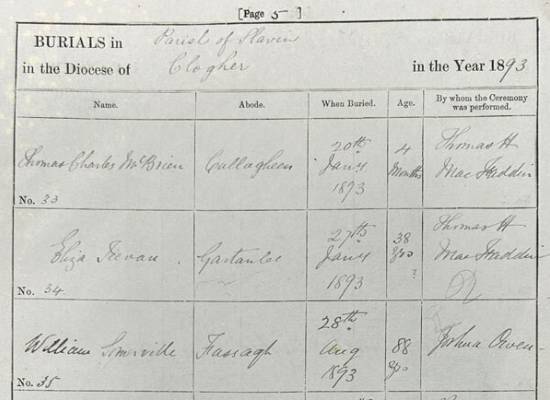 [Page 5]
BURIALS in Parish of Slavin
in the Diocese of Clogher in the Year 1893
Name. Abode. When Buried. Age. By whom the Ceremony was performed.
Thomas Charles McBrien Cullagheen 20th Jany 1893 4 Months Thomas H MacFaddin
No. 33
Eliza 27th Jany 1893 38 yrs Thomas H MacFaddin
No. 34
William Somerville Fassagh 28th Aug 1893 88 yrs Joshua Owen
No. 35